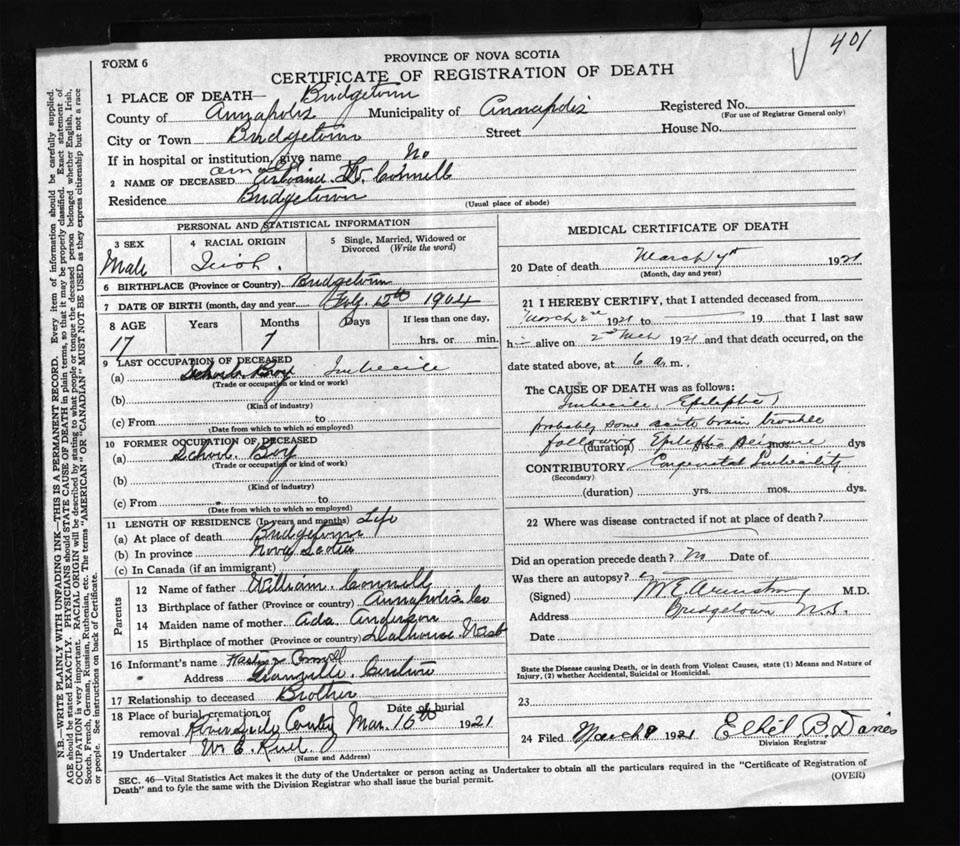 401
FORM 6
PROVINCE OF NOVA SCOTIA
CERTIFICATE OF REGISTRATION OF DEATH
1 PLACE OF DEATH— Bridgetown
County of Annapolis Municipality of Annapolis Registered No.
(For use of Registrar General only)
City or Town Bridgetown Street House No.
If in hospital or institution, give name No
2 NAME OF DECEASED W. Connell
Residence Bridgetown
(Usual place of abode)
PERSONAL AND STATISTICAL INFORMATION
3 SEX Male
4 RACIAL ORIGIN Irish.
5 Single, Married, Widowed or Divorced (Write the word)
6 BIRTHPLACE (Province or Country) Bridgetown
7 DATE OF BIRTH (month, day and year 1904
8 AGE Years Months Days If less than one day,
17 7 hrs. or min.
9 LAST OCCUPATION OF DECEASED
(a) School Boy Imbecile
(Trade or occupation or kind or work)
(b)
(Kind of industry)
(c) From to
(Date from which to which so employed)
10 FORMER OCCUPATION OF DECEASED
(a) School Boy
(Trade or occupation or kind or work)
(b)
(Kind of industry)
(c) From to
(Date from which to which so employed)
11 LENGTH OF RESIDENCE (In years and months) Life
(a) At place of death Bridgetown
(b) In province Nova Scotia
(c) In Canada (if an immigrant)
Parents
12 Name of father William Connell
13 Birthplace of father (Province or country) Annapolis Co
14 Maiden name of mother Ada Anderson
15 Birthplace of mother (Province or country) Dalhousie West
16 Informant's name Connell
Address Granville
17 Relationship to deceased Brother
18 Place of burial, cremation or removal Riverside Date of burial Mar. 16th 1921
19 Undertaker W. E.
(Name and Address)
MEDICAL CERTIFICATE OF DEATH
20 Date of death March 1921
(Month, day and year)
21 I HEREBY CERTIFY, that I attended deceased from
March 2nd 1921 to 19 that I last saw
h alive on 2nd Mch 1921 and that death occurred, on the
date stated above, at 6 a.m.,
The CAUSE OF DEATH was as follows:
Imbecile, Epileptic,
probably some acute brain trouble
following Epileptic Seizure
(duration) yrs. mos. dys
CONTRIBUTORY Congenital Imbecility
(Secondary)
(duration) yrs. mos. dys.
22 Where was disease contracted if not at place of death?
Did an operation precede death? No Date of
Was there an autopsy?
(Signed) M E Armstrong M.D.
Address Bridgetown N.S.
Date
State the Disease causing Death, or in death from Violent Causes, state (1) Means and Nature of
Injury, (2) whether Accidental, Suicidal or Homicidal.
23
24 Filed March 1921 Ethel B. Davies
Division Registrar
SEC. 46—Vital Statistics Act makes it the duty of the Undertaker or person acting as Undertaker to obtain all the particulars required in the "Certificate of Registration of
Death" and to fyle the same with the Division Registrar who shall issue the burial permit.
(OVER)
N.B.—WRITE PLAINLY WITH UNFADING INK—THIS IS A PERMANENT RECORD. Every item of information should be carefully supplied.
AGE should be stated EXACTLY. PHYSICIANS should STATE CAUSE OF DEATH in plain terms, so that it may be properly classified. Exact statement of
OCCUPATION is very important. RACIAL ORIGIN will be described by stating to what people or tongue the deceased person belonged whether English, Irish,
Scotch, French, German, Russian, Ruthenian, etc. The terms "AMERICAN" OR "CANADIAN" MUST NOT BE USED as they express citizenship but not a race
or people. See instructions on back of Certificate.